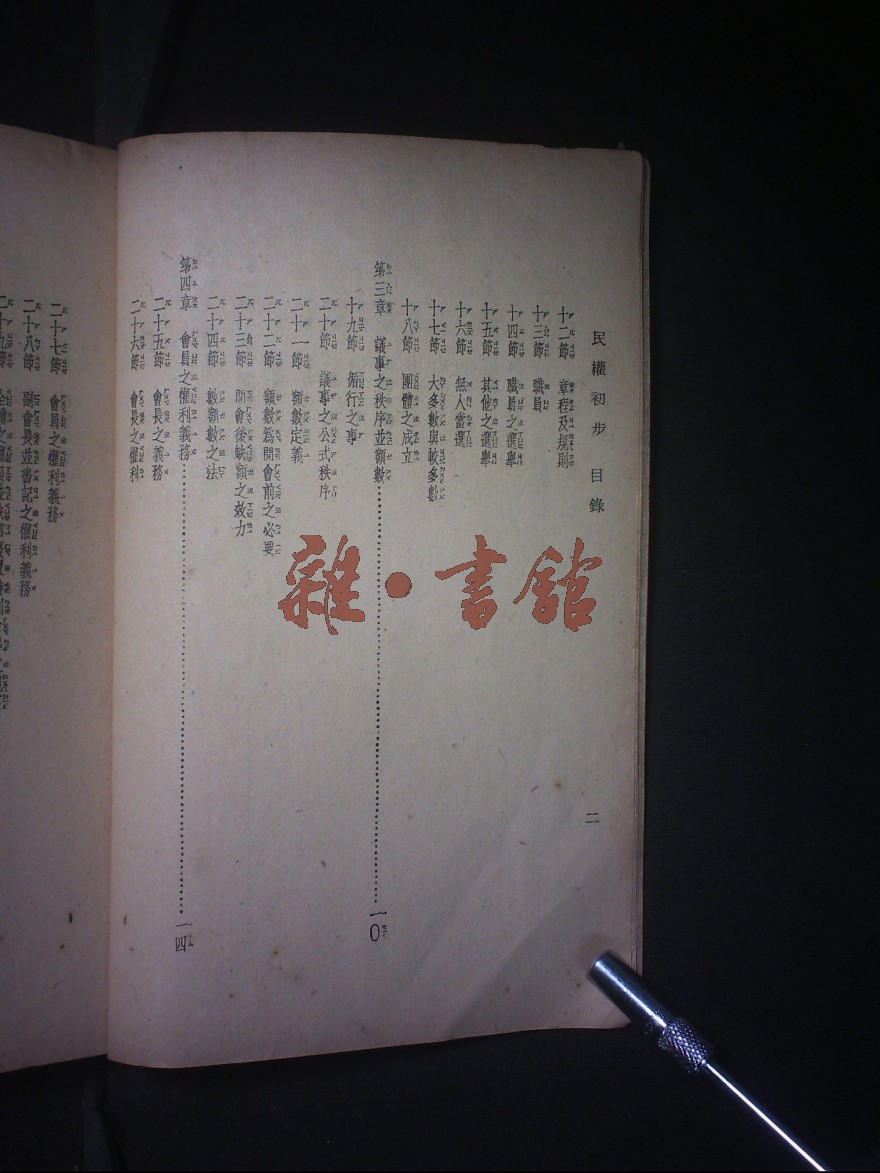 民權初步 目錄
二
十二節 章程及規則
十三節 職員
十四節 職員之選舉
十五節 其他之選舉
十六節 無人當選
十七節 大多數與較多數
十八節 團體之成立
第三章 議事之秩序並額數……一〇
十九節 循行之事
二十節 議事之公式秩序
二十一節 額數定義
二十二節 額數為開會前之必要
二十三節 開會後缺額之效力
二十四節 數額數之法
第四章 會員之權利義務……一四
二十五節 會長之義務
二十六節 會長之權利
二十七節 會員之權利義務
二十八節 副會長並書記之權利義務
二十九節
雜·書館